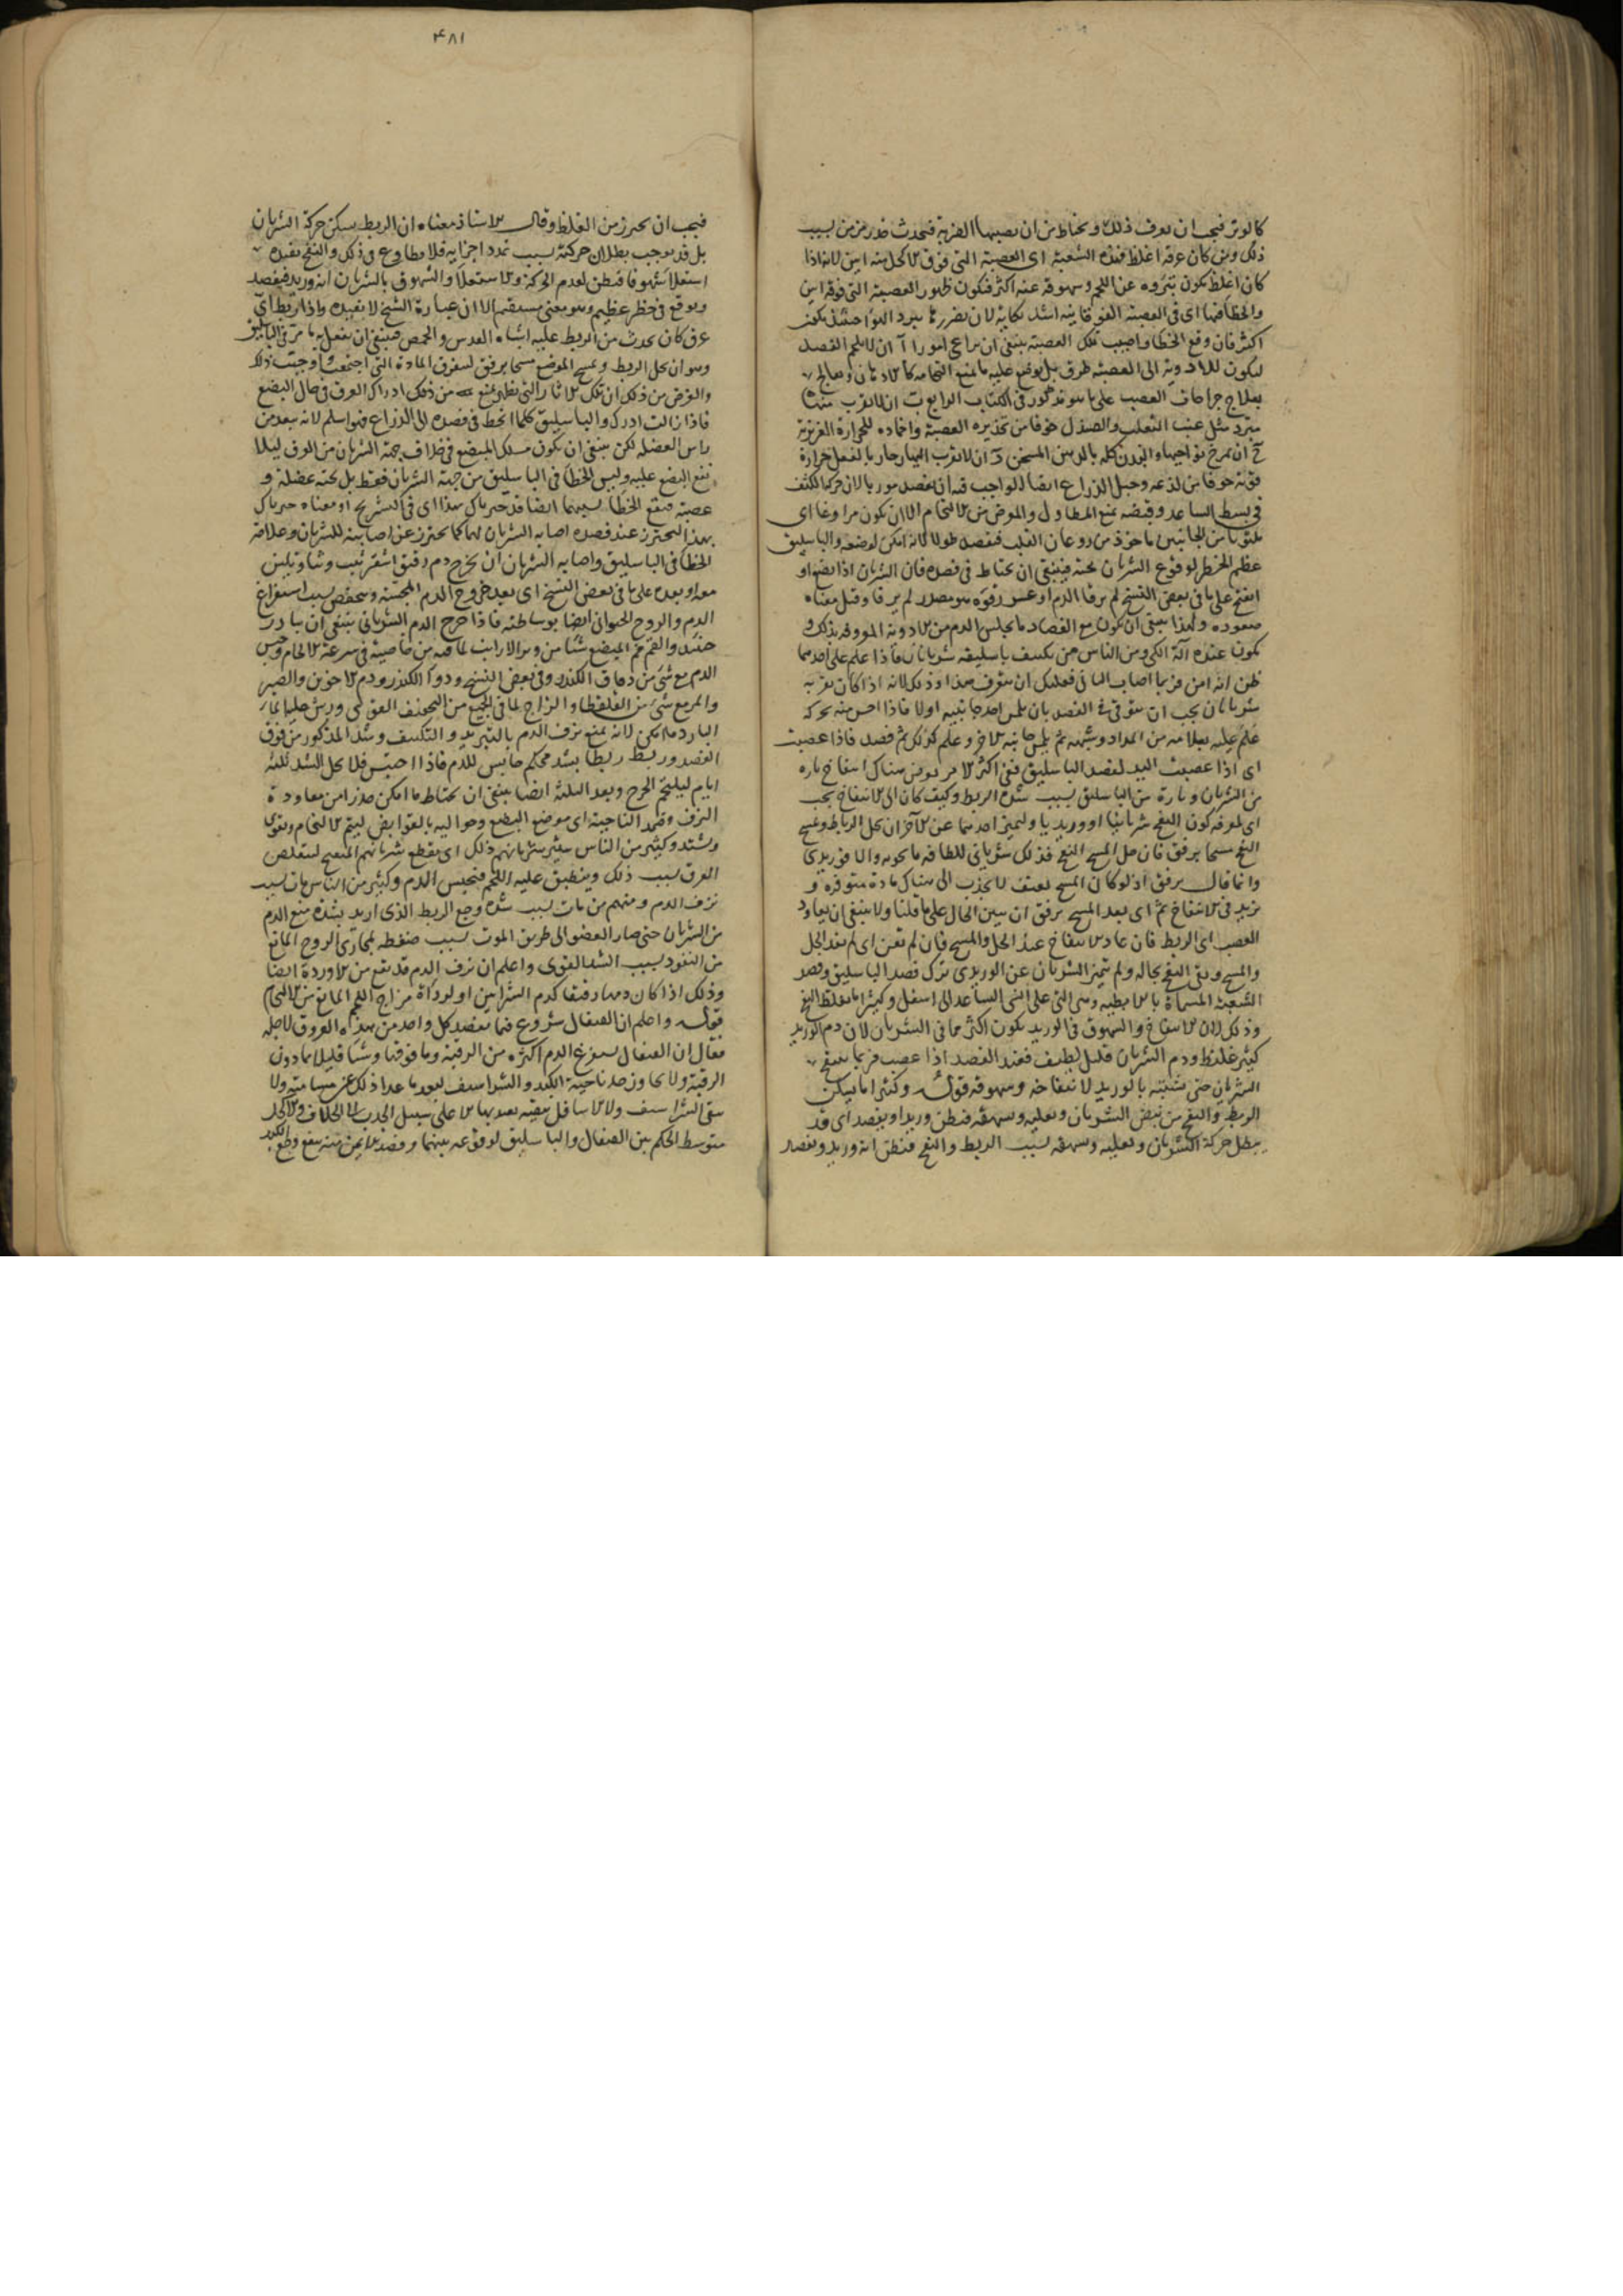 كالوتر فيجب ان يعرف ذلك ويحتاط من ان يصيبها الضربة فيحدث خدر مزمن بسبب
ذلك ومن كان عرقه اغلظ فهذه الشعبة اى العصبة التى فوق الاكحل منه ابين لانه اذا
كان اغلظ يكون نتوه عن اللحم وسهوقه عنه اكثر فيكون ظهور العصبة التى فوقه ابين
والخطا فيها اى فى العصبة الفوقانية اشد نكاية لان تضررها ببرد الهوا حينئذ يكون
اكثر فان وقع الخطا واصيب تلك العصبة ينبغى ان يراعى امورا آ ان لا يلحم الفصد
ليكون للادوية الى العصبة طرق بل يوضع عليه ما يمنع التحامه كالادهان ويعالج
بعلاج جراحات العصب على ما هو مذكور فى الكتاب الرابع ب ان لا يقرب منها
مبرد مثل عنب الثعلب والصندل خوفا من تخديره العصبة واخماده للحرارة الغريزية
ج ان يمرخ نواحيها والبدن كله بالدهن المسخن د ان لا يقرب اليها حار بالفعل حرارة
قوية خوفا من لذعه وحبل الذراع ايضا الواجب فيه ان يفصد موربا لان حركة الكتف
فى بسط الساعد وقبضه يمنع المطاول والمورض من الالتحام الا ان يكون مراوغا اى
يلتوى من الجانبين ماخوذ من روغان الثعلب فيفصد طولا لانه امكن لوضعه والباسليق
عظيم الخطر لوقوع الشريان تحته فينبغى ان يحتاط فى فصده فان الشريان اذا بضع او
انفتح على ما فى بعض النسخ لم يرقا الدم او عسر رقوه هو مصدر لم يرقا وقيل معناه
صعوده ولهذا ينبغى ان يكون مع الفصاد ما يحبس الدم من الادوية المعروفة بذلك و
يكون عنده آلة الكى ومن الناس من يكتنف باسليقه شريانان فاذا علم على احدهما
ظن انه امن فربما اصاب الثانى فعليك ان تتعرف هذا وذلك لانه اذا كان بقربه
شريانان يجب ان يتوقى فى الفصد بان يلمس احد جانبيه اولا فاذا احس منه بحركة
علم عليه بعلامة من المداد وشبهه ثم يلمس جانبه الاخر وعلم كذلك ثم فصد فاذا عصبت
اى اذا عصبت اليد لفصد الباسليق ففى اكثر الامر يعرض هناك انتفاخ تارة
من الشريان وتارة من الباسليق بسبب شدة الربط وكيف كان اى الانتفاخ يجب
اى لمعرفة كون النفخ شريانيا او وريديا ولتميز احدهما عن الاخر ان يحل الرباط ويمسح
النفخ مسحا برفق فان حل المسح النفخ فذلك شريانى للطافة ما يحويه والا فوريدى
وانما قال برفق اذ لو كان المسح بعنف لانجذب الى هناك مادة متوفرة و
يزيد فى الانتفاخ ثم اى بعد المسح برفق ان تبين الحال على ما قلنا ولا ينبغى ان يعاود
العصب اى الربط فان عاد الانتفاخ عند الحل والمسح فان لم تغن اى لم تفد الحل
والمسح وبقى النفخ بحاله ولم يتميز الشريان عن الوريدى ترك فصد الباسليق وفصد
الشعبة المسماة بالابطية وهى التى على انسى الساعد الى اسفل وكثيرا ما يغلظ النفخ
وذلك لان الانتفاخ والسهوق فى الوريد يكون اكثر مما فى الشريان لان دم الوريد
كثير غليظ ودم الشريان قليل لطيف فعند الفصد اذا عصب فربما ينتفخ
الشريان حتى يشتبه بالوريد لانتفاخه وسهوقه قوله وكثيرا ما يسكن
الربط والنفخ من نبض الشريان ويعليه ويسهقه فيظن وريدا ويفصد اى قد
يبطل حركة الشريان ويعليه ويسهقه بسبب الربط والنفخ فيظن انه وريد ويفصد
۴۸۱
فيجب ان يحترز من الغلظ وقال الاستاذ معناه ان الربط يسكن حركة الشريان
بل قد يوجب بطلان حركته بسبب تمدد اجزائه فلا يطاوع فى ذلك والنفخ يفيده
استعلا سهوقا فيظن لعدم الحركة والاستعلا والسهوق بالشريان انه وريد فيفصد
ويوقع فى خطر عظيم وهو معنى مستقيم الا ان عبارة الشيخ لا تفيده واذا ربط اى
عرق كان يحدث من الربط عليه اشباه العدس والحمص فينبغى ان يفعل به ما مر فى الباسليق
وهو ان يحل الربط ويمسح الموضع مسحا برفق لتفرق المادة التى اجتمعت واوجبت ذلك
والغرض من ذلك ان تلك الاثار التى يظهر يمنع من ذلك ادراك العرق فى حال البضع
فاذا زالت ادرك والباسليق كلما انحط فى فصده الى الذراع فهو اسلم لانه يبعد من
راس العضله لكن ينبغى ان يكون مسلك المبضع فى خلاف جهة الشريان من العرق ليلا
يقع البضع عليه وليس الخطا فى الباسليق من جهة الشريان فقط بل تحته عضلة و
عصبة فيقع الخطا بسببهما ايضا قد خبرناك بهذا اى فى التشريح او معناه خبرناك
بهذا لتحترز عند فصده اصابة الشريان لهما كما تحترز عن اصابته للشريان وعلامة
الخطا فى الباسليق واصابة الشريان ان يخرج دم رقيق اشقر يثب وثبا ويلين
معه او بعده على ما فى بعض النسخ اى بعد خروج الدم المجسة وينخفض بسبب استفراغ
الدم والروح الحيوانى ايضا بوساطته فاذا خرج الدم الشريانى ينبغى ان يبادر
حينئذ والقم فم المبضع شيئا من وبر الارانب لما فيه من خاصية فى سرعة الالحام وحبس
الدم مع شى من دقاق الكندر وفى بعض النسخ ودوا الكندر ودم الاخوين والصبر
والمر مع شى من القلقطار والزاج لما فى الجميع من التجفيف القوى ويرش عليه الماء
البارد ما امكن لانه يمنع نزف الدم بالتبريد والتكثيف وشد المذكور من فوق
الفصد وربط ربطا بشد محكم حابس للدم فاذا احتبس فلا يحل الشد ثلثة
ايام ليلتحم الجرح وبعد الثلثة ايضا ينبغى ان يحتاط ما امكن حذرا من معاودة
النزف وضمد الناحية اى موضع البضع وحواليه بالقوابض ليتم الالتحام ويقوى
ويشتد وكثير من الناس يبتر شريانهم ذلك اى يقطع شريانهم المنفتح ليتقلص
العرق بسبب ذلك وينطبق عليه اللحم فيحبس الدم وكثير من الناس مات بسبب
نزف الدم ومنهم من مات بسبب شدة وجع الربط الذى اريد بشده منع الدم
من الشريان حتى صار العضو الى طريق الموت بسبب ضغطه لمجارى الروح المانع
من النفوذ بسبب الشد القوى واعلم ان نزف الدم قد يقع من الاوردة ايضا
وذلك اذا كان دمها رقيقا كدم الشرايين او لرداة مزاج اللحم المانع من الالتحام
قوله واعلم ان القيفال شروع فيما يفصد كل واحد من هذه العروق لاجله
فقال ان القيفال يستفرغ الدم اكثره من الرقبة وما فوقها وشيا قليلا مما دون
الرقبة ولا يجاوز حد ناحية الكبد والشراسيف لبعد ما عداذلك عن مسامتته ولا
ينقى الشراسيف والاسافل تنقية يعتد بها الا على سبيل الجذب الى الخلاف والاكحل
متوسط الحكم بين القيفال والباسليق لوقوعه بينهما وفصد الايمن منه ينفع وجع الكبد